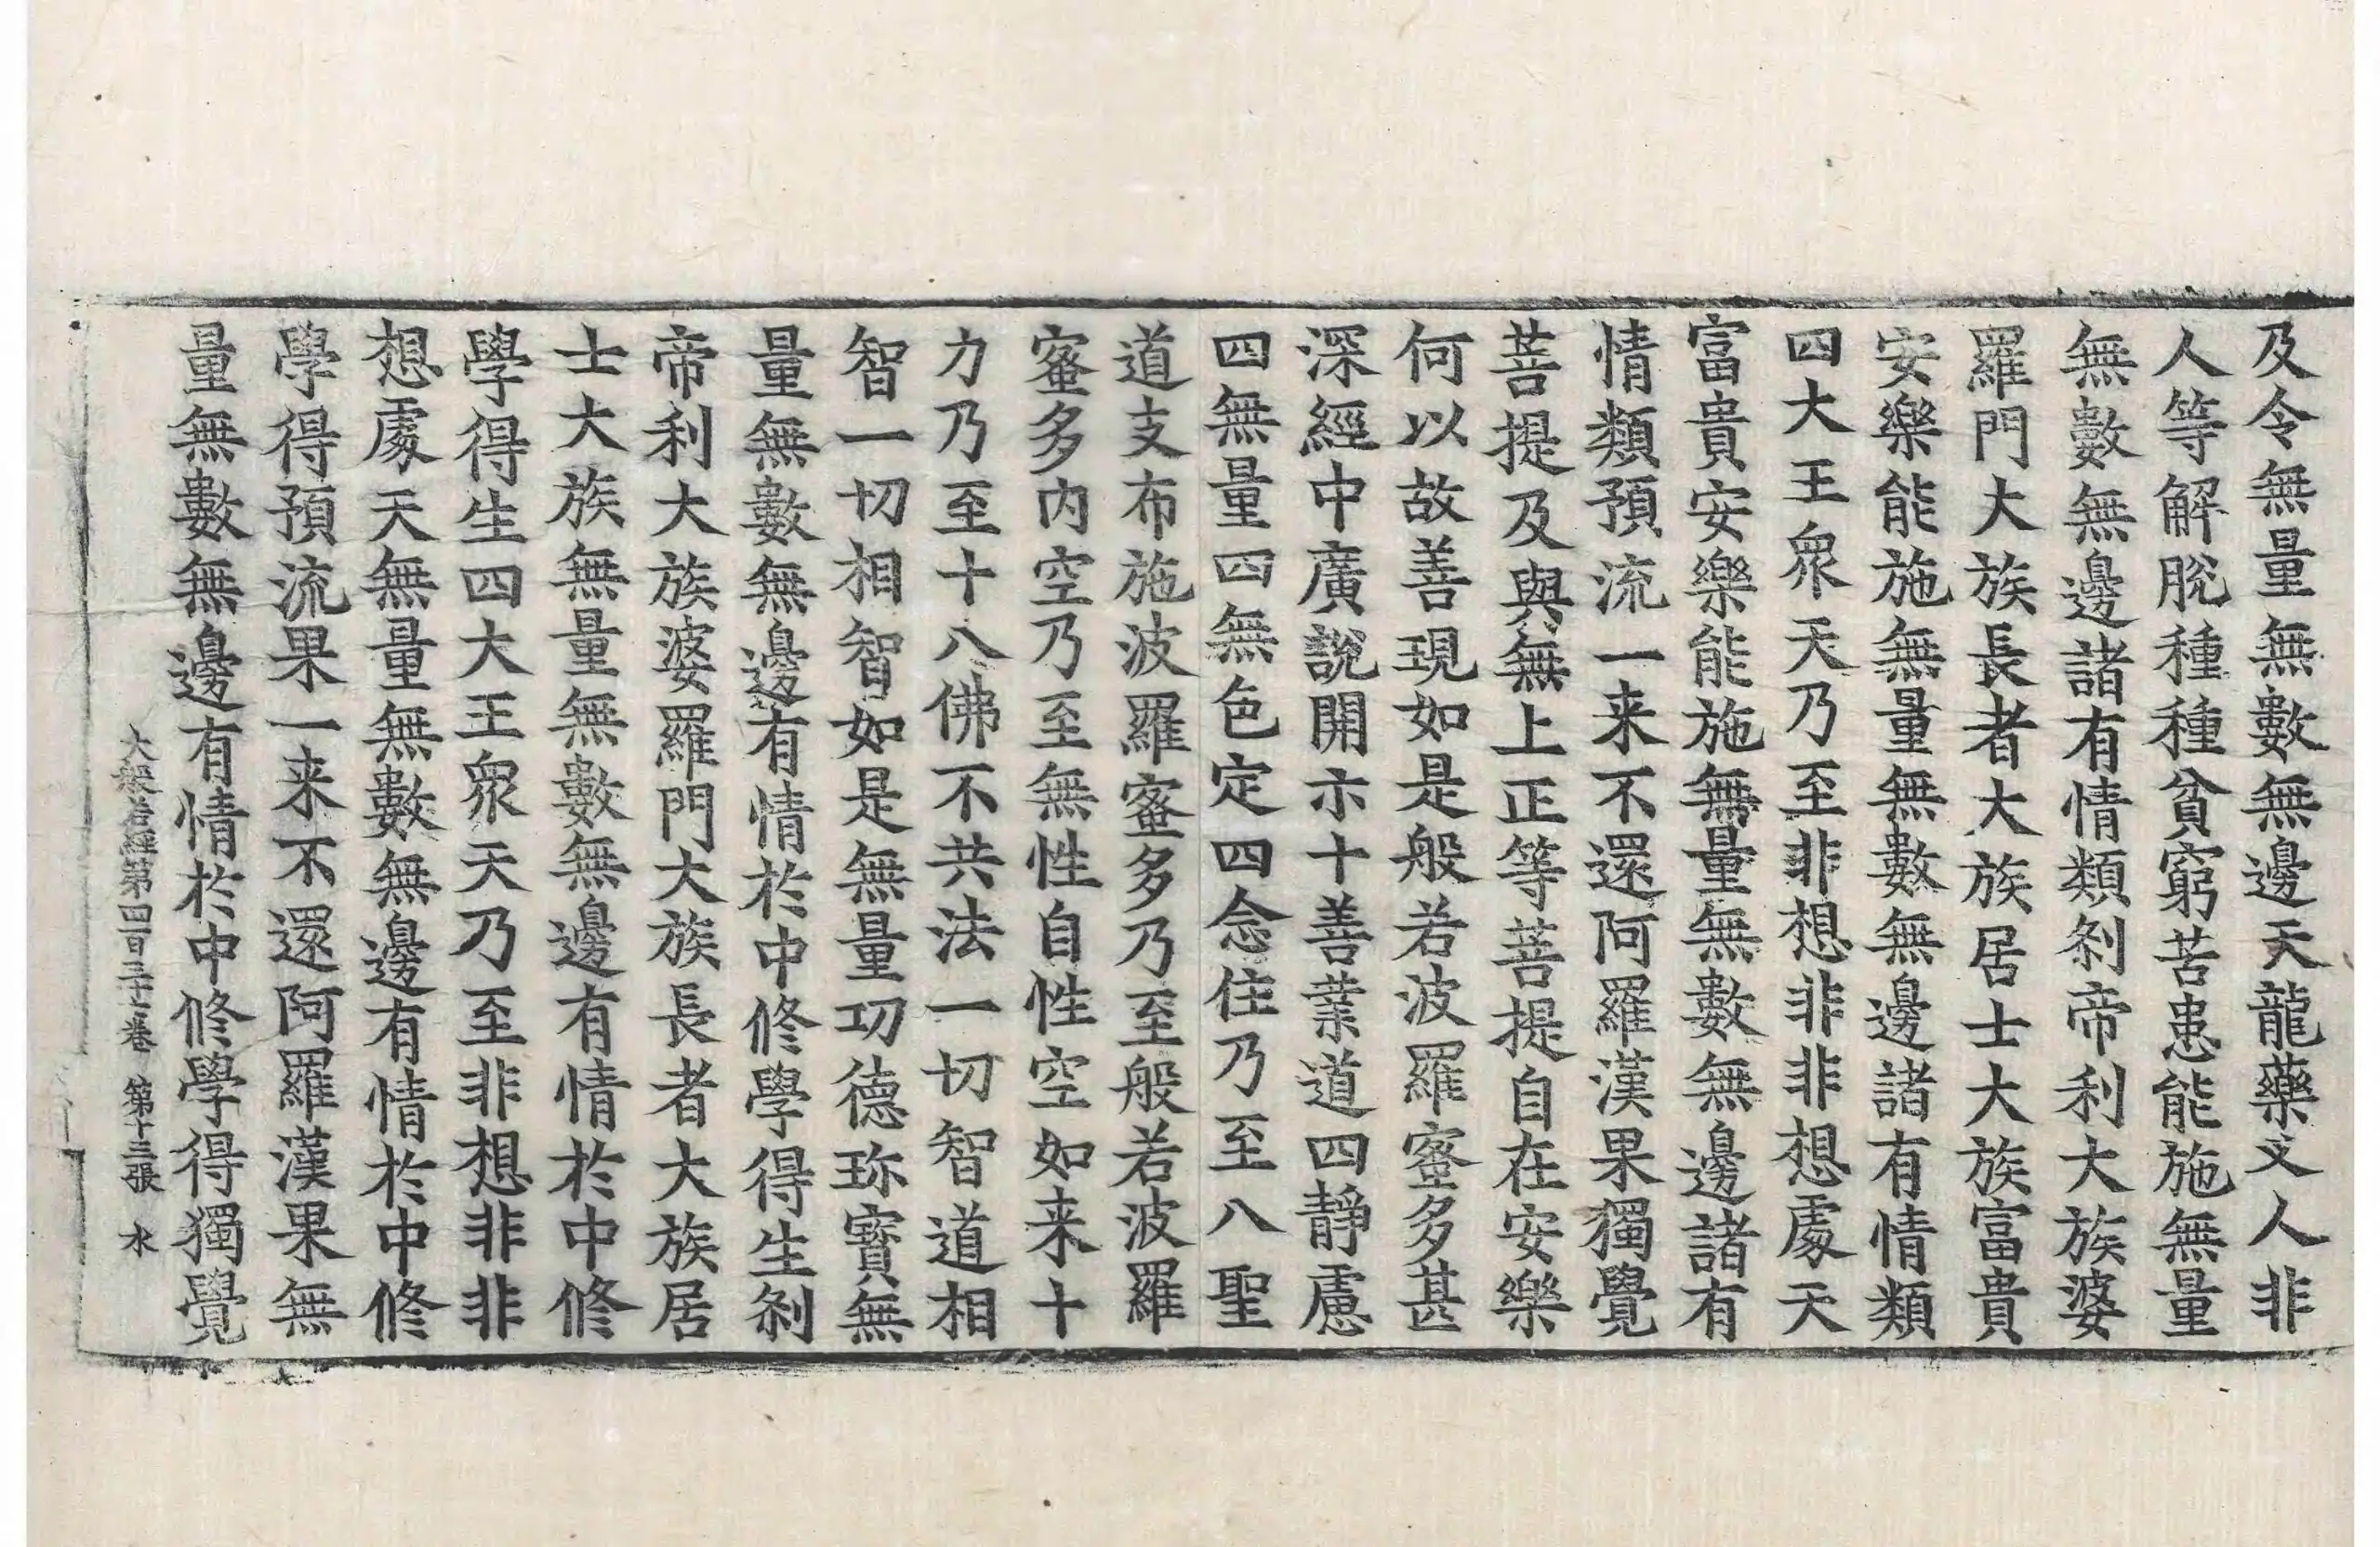 及令無量無數無邊天龍藥叉人非
人等解脫種種貧窮苦患能施無量
無數無邊諸有情類刹帝利大族婆
羅門大族長者大族居士大族富貴
安樂能施無量無數無邊諸有情類
四大王衆天乃至非想非非想處天
富貴安樂能施無量無數無邊諸有
情類預流一来不還阿羅漢果獨覺
菩提及與無上正等菩提自在安樂
何以故善現如是般若波羅蜜多甚
深經中廣說開示十善業道四靜慮
四無量四無色定四念住乃至八聖
道支布施波羅蜜多乃至般若波羅
蜜多內空乃至無性自性空如来十
力乃至十八佛不共法一切智道相
智一切相智如是無量功德珎寶無
量無數無邊有情於中修學得生刹
帝利大族婆羅門大族長者大族居
士大族無量無數無邊有情於中修
學得生四大王衆天乃至非想非非
想處天無量無數無邊有情於中修
學得預流果一来不還阿羅漢果無
量無數無邊有情於中修學得獨覺
大般若經第四百三十七卷 第十三張 水